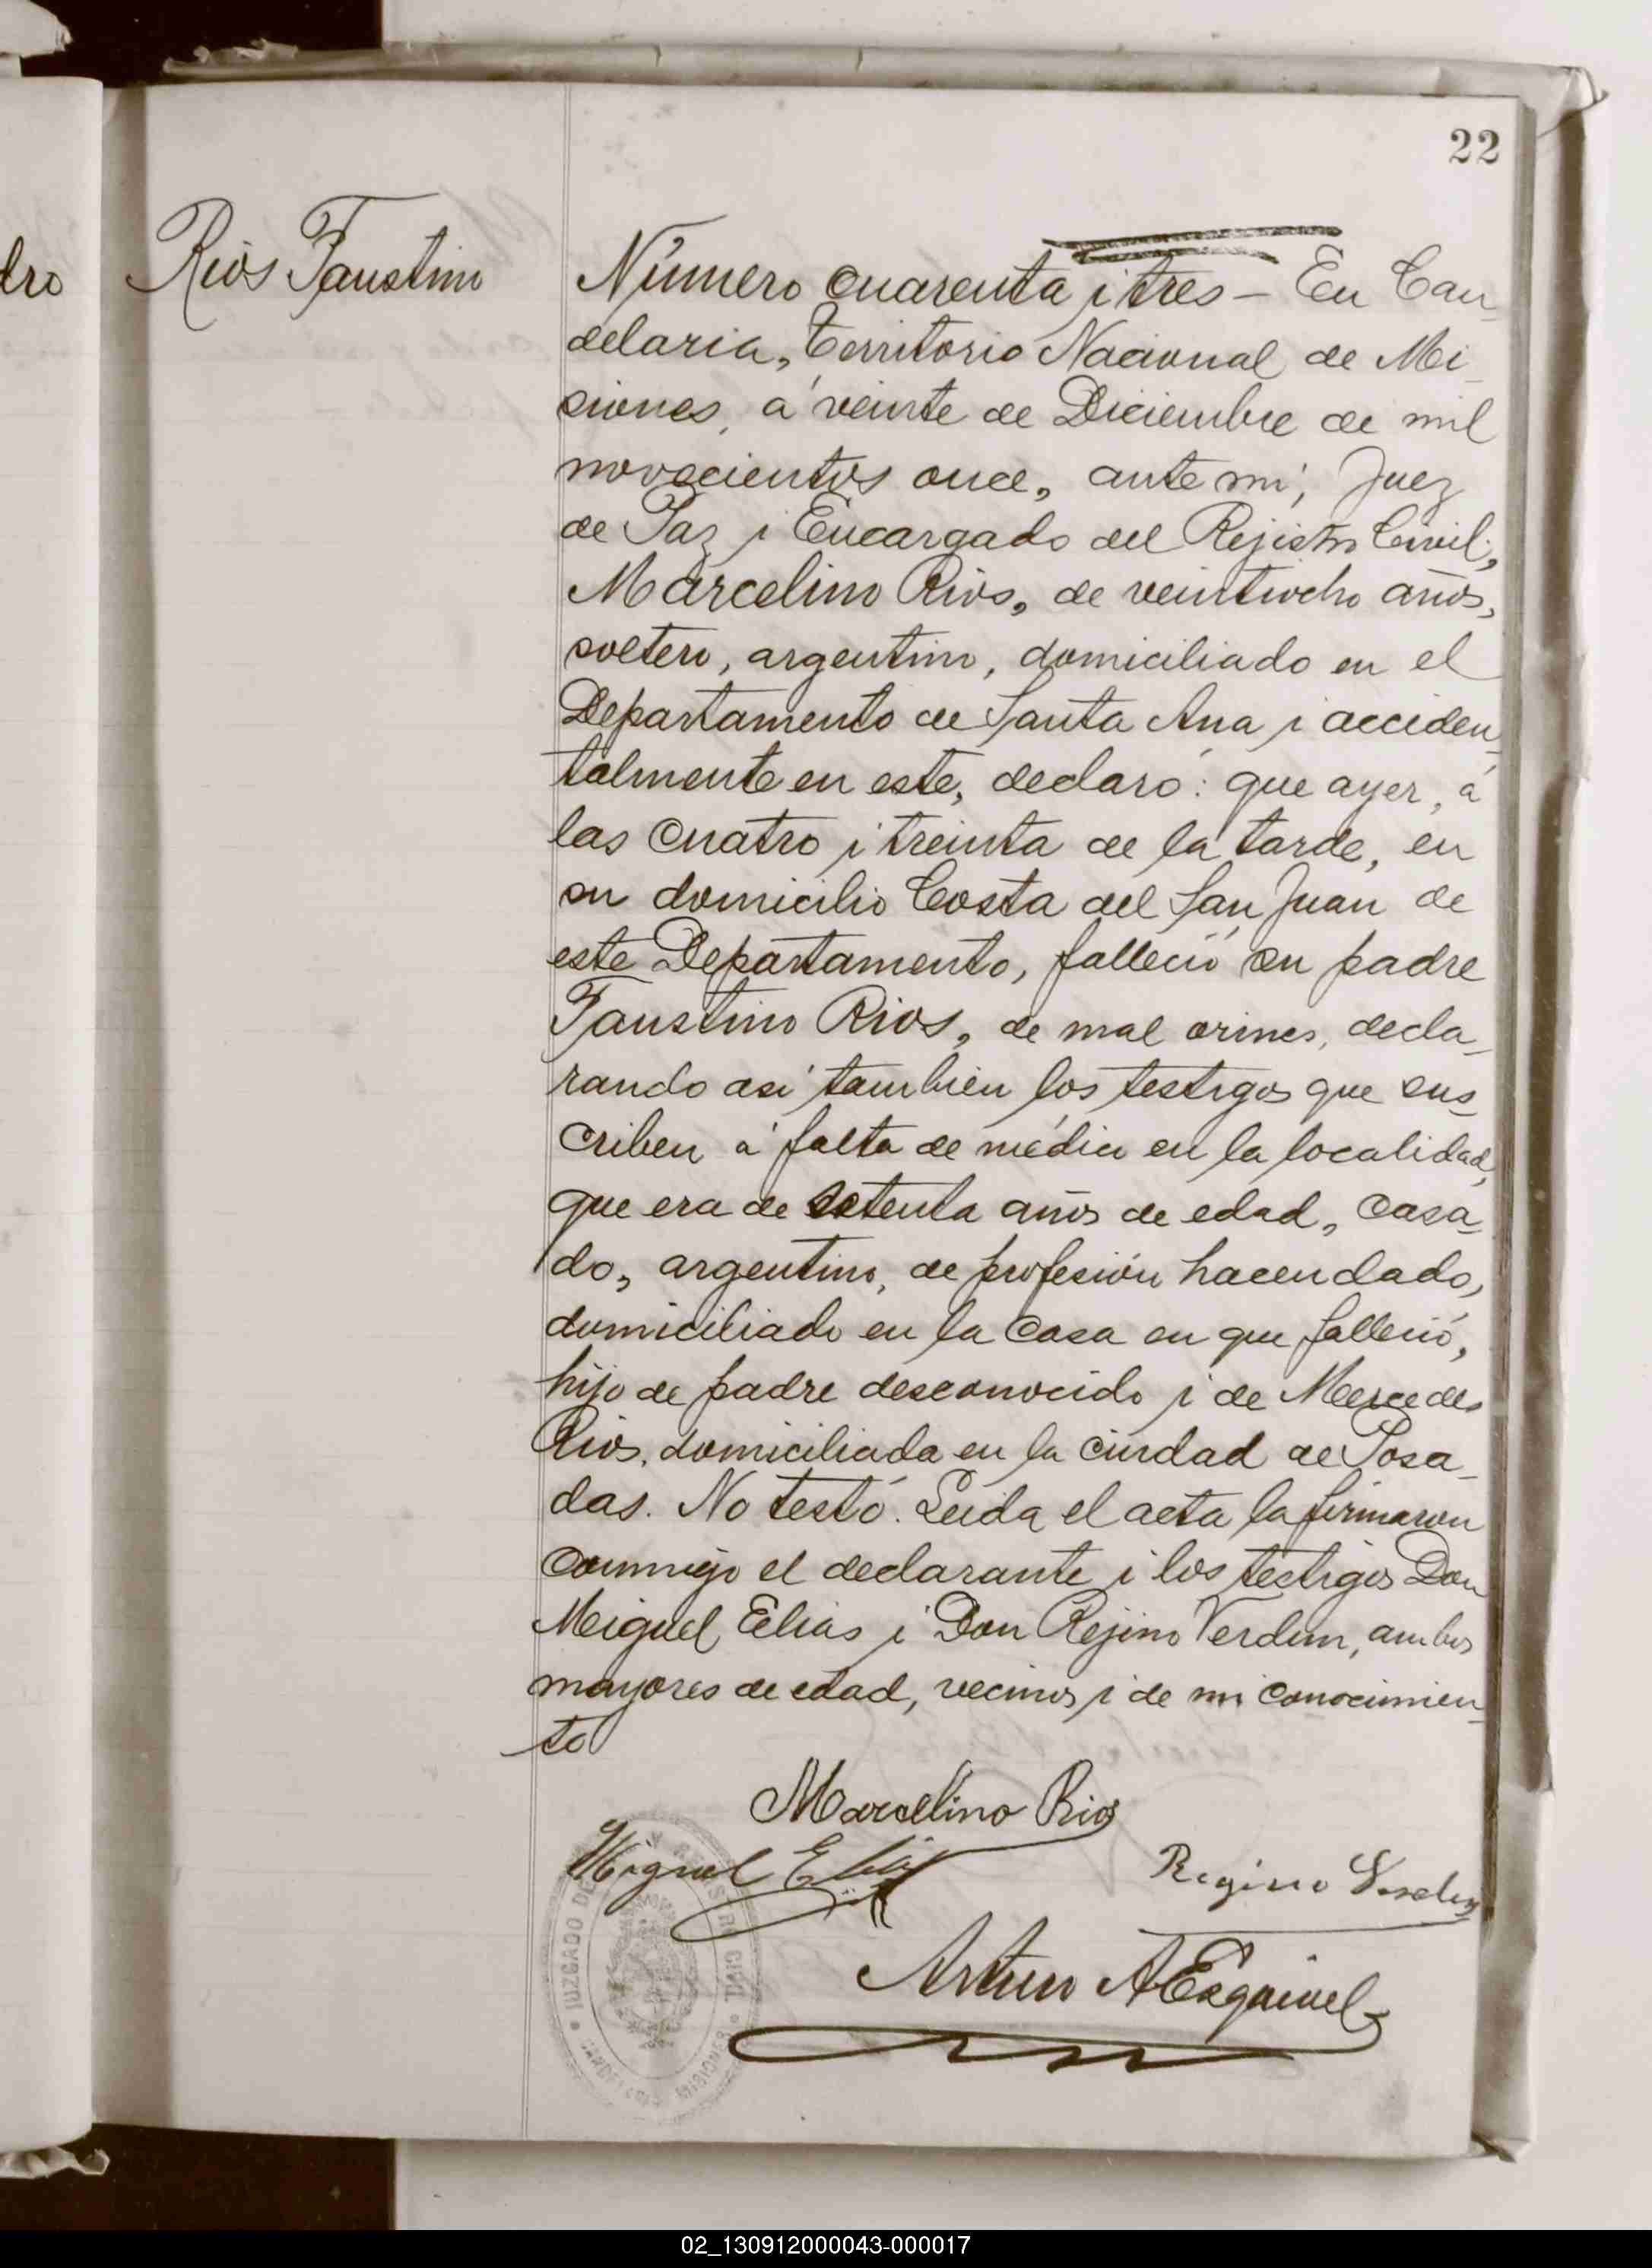 22
dro
Rios Faustino
Número cuarenta i tres — En Can-
delaria, Territorio Nacional de Mi-
siones, á veinte de Diciembre de mil
novecientos once, ante mi, Juez
de Paz i Encargado del Rejistro Civil,
Marcelino Rios, de veintiocho años,
soltero, argentino, domiciliado en el
Departamento de Santa Ana i acciden-
talmente en este, declaró: que ayer, á
las cuatro i treinta de la tarde, en
su domicilio Costa del San Juan de
este Departamento, falleció su padre
Faustino Rios, de mal orines, decla-
rando asi tambien los testigos que sus-
criben á falta de médico en la localidad,
que era de setenta años de edad, casa-
do, argentino, de profesión hacendado,
domiciliado en la casa en que falleció,
hijo de padre desconocido i de Mercedes
Rios, domiciliada en la ciudad de Posa-
das. No testó. Leida el acta la firmaron
conmigo el declarante i los testigos Don
Miguel Elias i Don Rejino Verdun, ambos
mayores de edad, vecinos i de mi conocimien-
to
Marcelino Rios
Miguel Elias
Regino Verdun
Arturo A Esquivel
JUZGADO DE REGISTRO CIVIL
CANDELARIA MISIONES
02_130912000043-000017